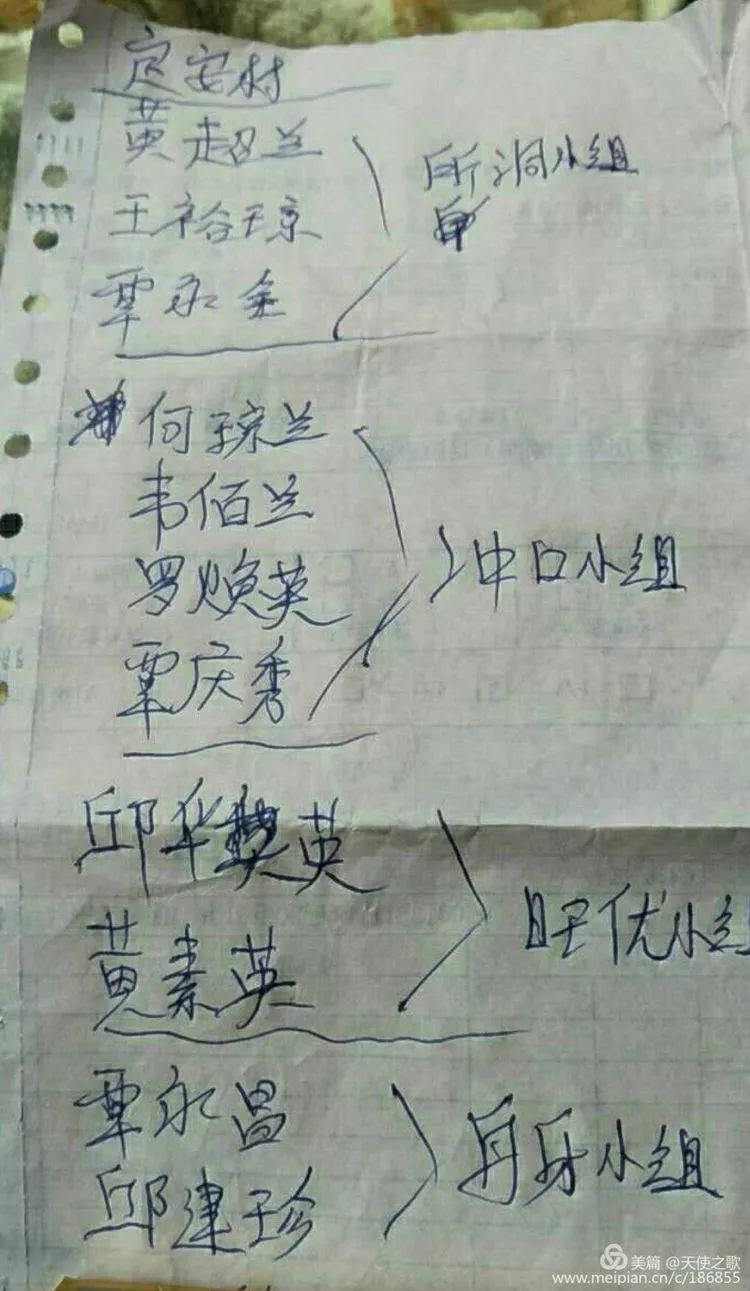 定安村
黄超兰
王裕琼
覃永金
所洞小组
何琼兰
韦佰兰
罗焕英
覃庆秀
冲口小组
邱华英
黄素英
旺优小组
覃永昌
邱建珍
丹牙小组
美篇 @天使之歌
www.meipian.cn/c/186855